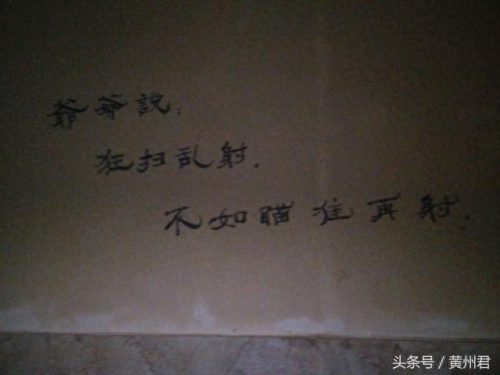 爺爺說：
狂扫乱射．
不如瞄准再射．
头条号／黄州君